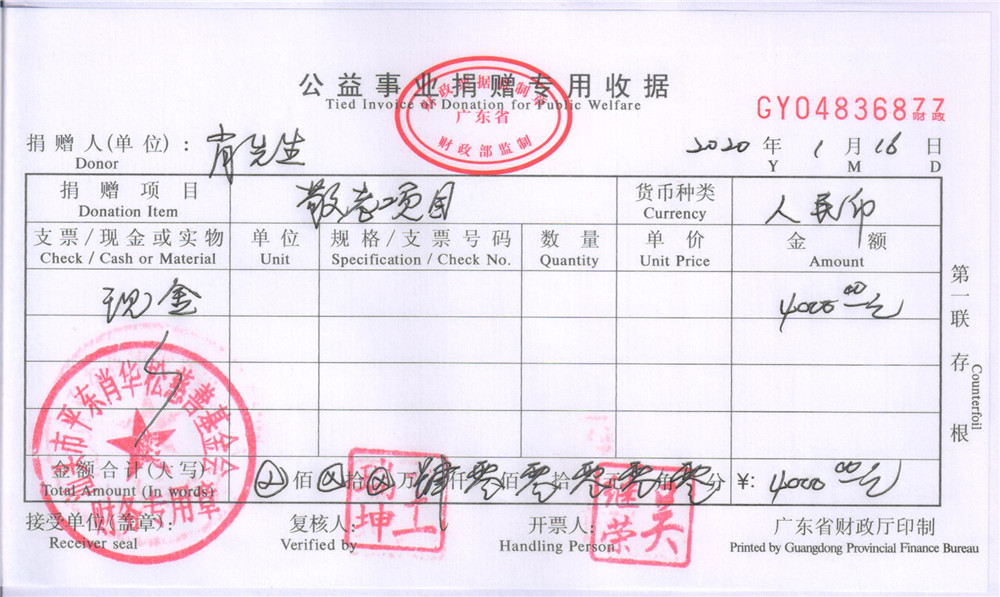 公益事业捐赠专用收据
Tied Invoice of Donation for Public Welfare
广东省
财政部监制
GY04836877
财政
捐赠人(单位)： 肖先生
Donor
2020 年 1 月 16 日
Y M D
捐赠项目 敬老项目 货币种类 人民币
Donation Item Currency
支票/现金或实物 单位 规格/支票号码 数量 单价 金额
Check / Cash or Material Unit Specification / Check No. Quantity Unit Price Amount
现金 4000.00元
金额合计(大写) 佰 拾 万 肆仟 零佰 零拾 零元 零角 零分 ¥: 4000.00元
Total Amount (In words)
接受单位(盖章)： 复核人： 开票人： 广东省财政厅印制
Receiver seal Verified by Handling Person Printed by Guangdong Provincial Finance Bureau
第一联 存根
Counterfoil
市平东肖华松慈善基金会
财务专用章
继荣
吴